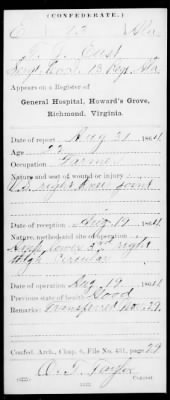 (CONFEDERATE.)
E 13 Ala
J. T. East
Co. E 13 Reg. Ala
Appears on a Register
of
General Hospital, Howard's Grove,
Richmond, Virginia.
Date of report Aug 31 1864
Age 22
Occupation Farmer
Nature and seat of wound or injury:
V.S. right knee joint
Date of reception Aug 19 1864
Nature, method and site of operation
lower 3d right
thigh Circular
Date of operation Aug 19 1864
Previous state of health Good
Remarks: transferred Nov. 29.
Confed. Arch., Chap. 6, File No. 431, page 29
Copyist.